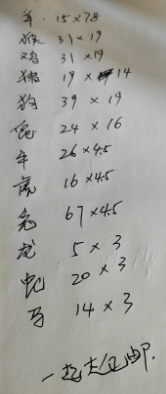 羊. 15×7.8
猴 31×19
鸡 31×19
猪 19×14
狗 39×19
鼠 24×16
牛 26×4.5
虎 16×4.5
兔 67×4.5
龙 5×3
蛇 20×3
马 14×3
一起走包邮.